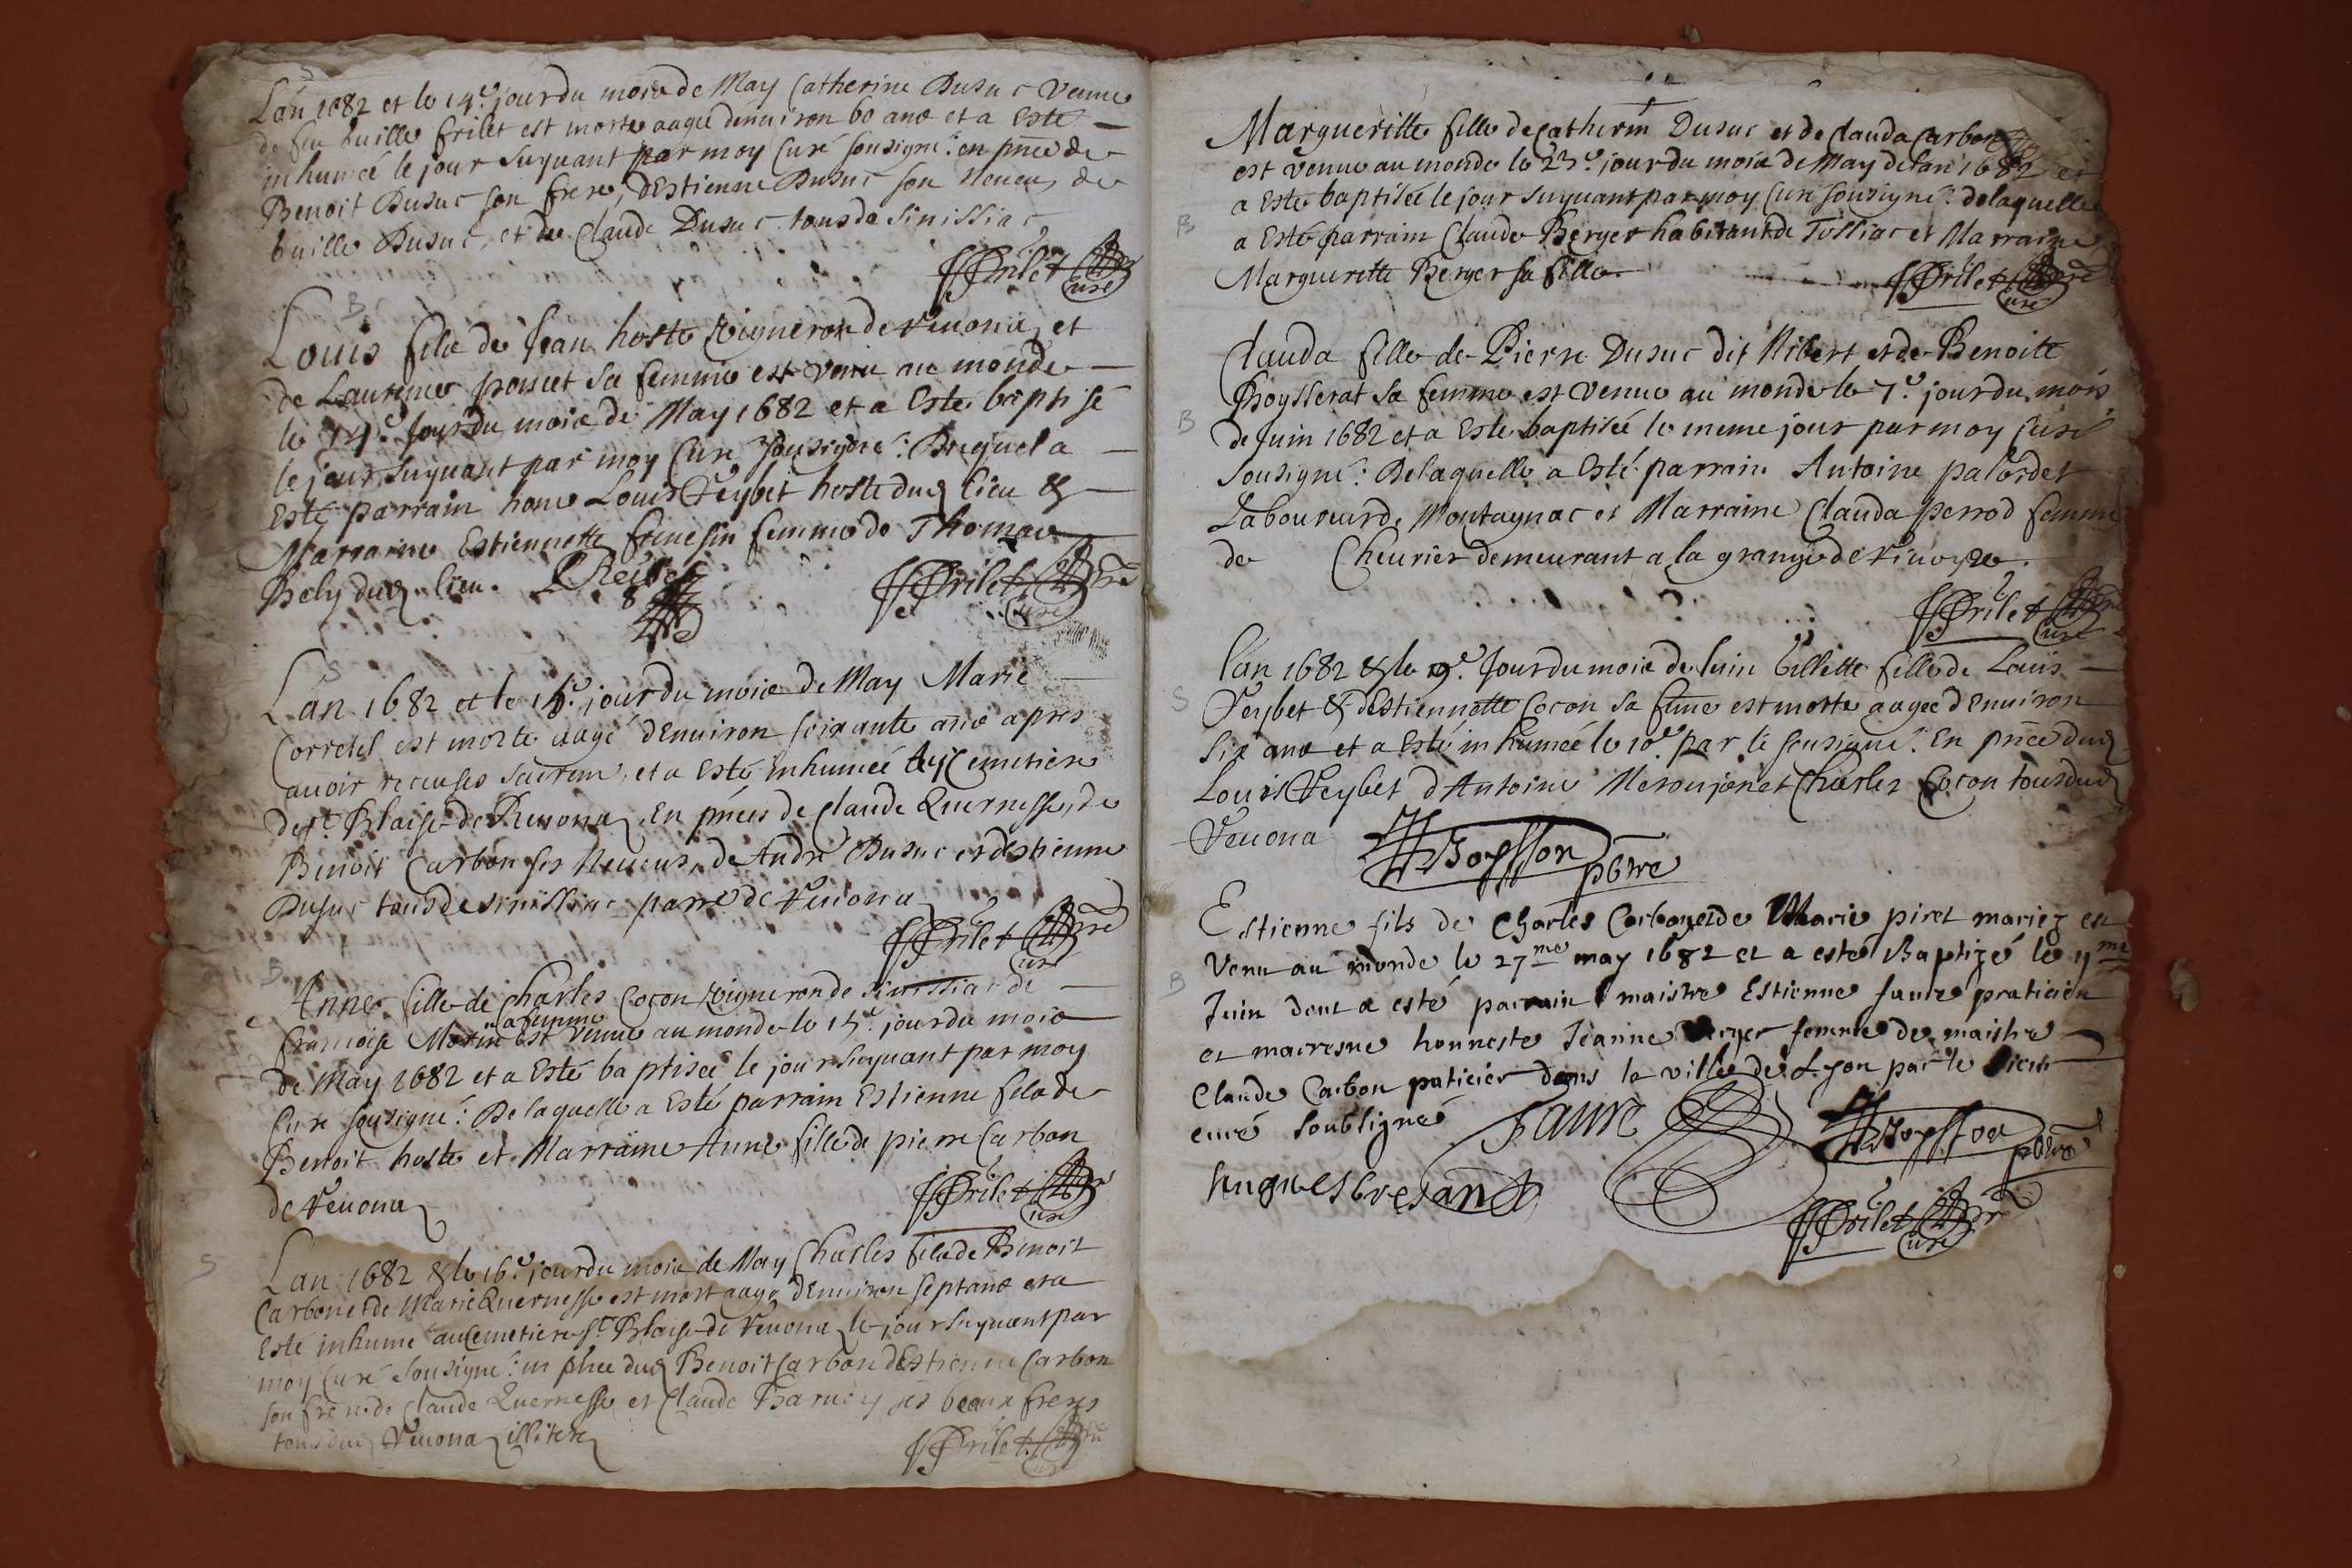 S
Lan 1682 et le 14.e jour du mois de May Catherine Dusuc veuue
de feu Guille frilet est morte aagée denuiron 60 ans et a Esté
inhumée le jour suyuant par moy Curé sousigné: en pnce de
Benoit Dusuc son frere, dEstienne Dusuc son Neueu, de
Guille Dusuc, et de Claude Dusuc tous de Sinissiac
Frilet Curé
B
Louis fils de Jean hoste Vigneron de Veuona, et
de Laurence poncet sa femme est venu au monde
le 14.e Jour du mois de May 1682 et a Esté baptisé
le jour suyuant par moy Curé sousigné: Duquel a
Esté parrain hone Louis Veybet hoste dud lieu &
Marraine Estiennette femme de Thomas
Bely dud lieu.
Frilet Curé
S
Lan 1682 et le jour du mois de May Marie
est morte aagé dEnuiron soixante ans apres
auoir receu ses sacrem, et a Esté inhumée Cemetiere
de St Blaise de Veuona, En pnces de Claude Quernesse, de
Benoit Carbon ses Neueus, de André Dusuc et dEstienne
Dusuc tous de Sinissiac parre de Veuona
Frilet Curé
B
Anne fille de Charles Cocon Vigneron de Sinissiac de
francoise Morin sa femme est venue au monde le 15.e jour du mois
de May 1682 et a Esté baptisée le jour suyuant par moy
Curé sousigné: De laquelle a Esté parrain Estienne fils de
Benoit hoste et Marraine Anne fille de pierre Carbon
de Veuona
Frilet Curé
S
Lan 1682 & le 16.e jour du mois de May Charles fils de Benoit
Carbon et de Marie Quernesse est mort aagé dEnuiron sept ans et a
Esté inhumé au Cemetiere St Blaise de Veuona le jour suyuant par
moy Curé sousigné: en pnce dud Benoit Carbon dEstienne Carbon
son frere de Claude Quernesse et Claude ses beaux freres
tous dud Veuona illiterez
Frilet Curé
Margueritte fille de Catherin Dusuc et de Clauda Carbon
est venue au monde le 23.e jour du mois de May de lan 1682 et
a Esté baptisée le jour suyuant par moy Curé sousigné: de laquelle
B
a Esté parrain Claude Berger habitant de Tossiac et Marraine
Marguerette Berger sa fille
Frilet Curé
Clauda fille de Pierre Dusuc dit Nibert et de Benoite
Boysserat sa femme est venue au monde le 7.e jour du mois
B
de Juin 1682 et a Esté baptisée le meme jour par moy Curé
sousigné: De laquelle a Esté parrain Antoine palordet
Laboureur de Montagnac et Marraine Clauda perrod femme
de Cheurier demeurant a la grange de
Frilet Curé
lan 1682 & le 9.e Jour du mois de Juin Gillette fille de Louis
S
Veybet & dEstiennette Cocon sa fame est morte aagée dEnuiron
six ans et a Esté inhumée le 10.e par le sousigné: En pnce dud
Louis Veybet dAntoine et Charles Cocon tous dud
Veuona
Boysson pbtre
Estienne fils de Charles Carbon et de Marie piret mariez est
Venu au monde le 27me may 1682 et a esté Baptizé le 11me
B
Juin dont a esté parrain maistre Estienne faure praticien
et marresne honneste Jeanne Berger femme de maistre
Claude Carbon paticier dans la ville de Lyon par le sieur
curé soubsigné
Faure
Boysson pbtre
hugues bresand
Frilet Curé